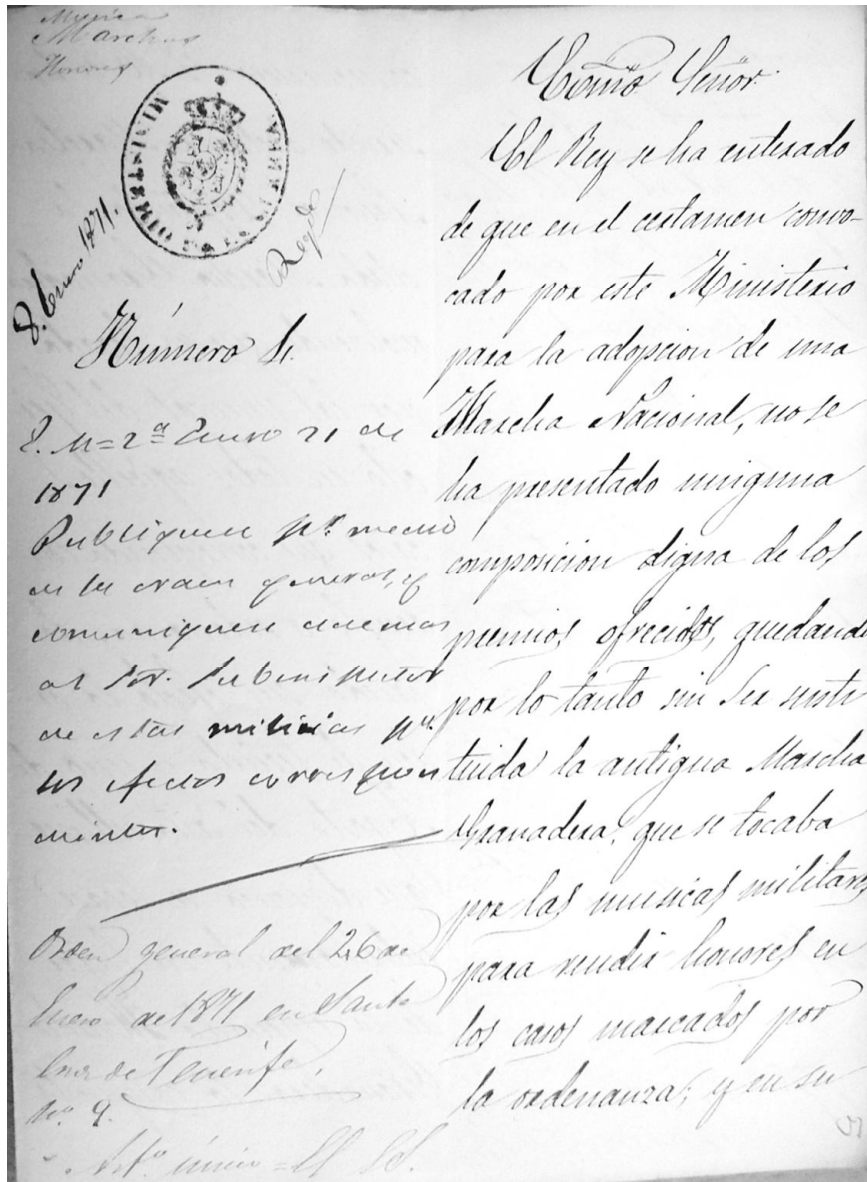 Musica
Marchas
Honores
MINISTERIO DE LA GUERRA
8. Enero 1871.
Regdo
Número
E. M = 2ª Enero 21 de
1871
Publiquese pr. medio
de la orden general, y
comuniquese ademas
al Sor. Subinspector
de estas milicias pa.
los efectos correspon
dientes.
Orden general del 26 de
Enero de 1871 en Santa
Cruz de Tenerife.
No. 9.
Arto. único = El
Excmo Señor.
El Rey se ha enterado
de que en el certamen convo-
cado por este Ministerio
para la adopcion de una
Marcha Nacional, no se
ha presentado ninguna
composicion digna de los
premios ofrecidos, quedando
por lo tanto sin ser susti
tuida la antigua Marcha
Granadera, que se tocaba
por las musicas militares
para rendir honores en
los casos marcados por
la ordenanza; y en su